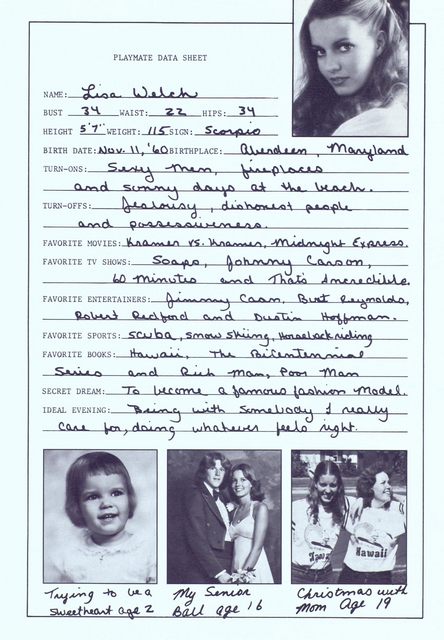 PLAYMATE DATA SHEET
NAME: Lisa Welch
BUST 34 WAIST: 22 HIPS: 34
HEIGHT 5'7" WEIGHT: 115 SIGN: Scorpio
BIRTH DATE: Nov. 11, '60 BIRTHPLACE: Aberdeen, Maryland
TURN-ONS: Sexy men, fireplaces
and sunny days at the beach.
TURN-OFFS: Jealousy, dishonest people
and possessiveness.
FAVORITE MOVIES: Kramer vs. Kramer, Midnight Express.
FAVORITE TV SHOWS: Soaps, Johnny Carson,
60 Minutes and Thats Incredible.
FAVORITE ENTERTAINERS: Jimmy Caan, Burt Reynolds,
Robert Redford and Dustin Hoffman.
FAVORITE SPORTS: Scuba, snow skiing, horseback riding
FAVORITE BOOKS: Hawaii, The Bicentennial
Series and Rich Man, Poor Man
SECRET DREAM: To become a famous fashion model.
IDEAL EVENING: Being with somebody I really
care for, doing whatever feels right.
Hawaii
Trying to be a
sweetheart age 2
My Senior
Ball age 16
Christmas with
Mom Age 19